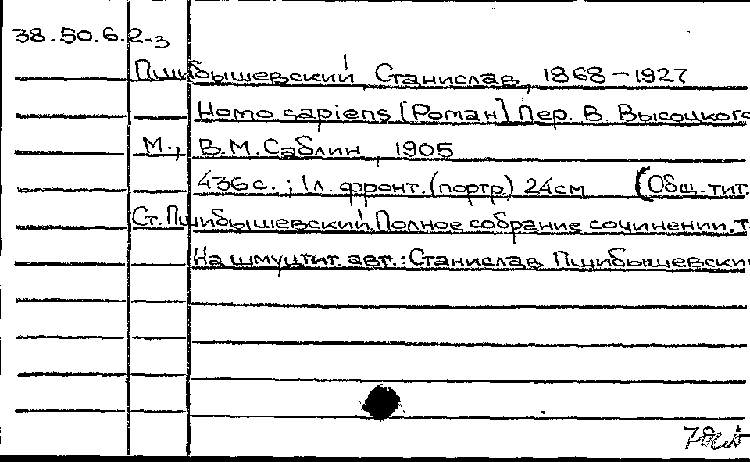 38.50.6.2-3
Пшибышевский, Станислав, 1868-1927
Homo sapiens [Роман] Пер. В. Высоцкого
М., В.М.Саблин, 1905
436с.; 1л. фронт.(портр) 24см (Общ. тит.
Ст.Пшибышевский.Полное собрание сочинении. т
На шмуцтит. авт.: Станислав Пшибышевски